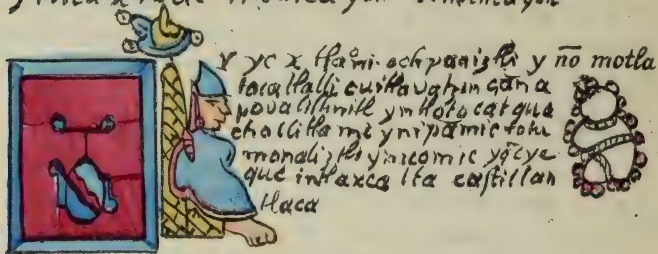 Y yc x tlāni ochpaniztli y n̄o motla
tocatlalli cuitlavatzin çān a
povalilhuitl yn tlotocat que
cholli tlami yn ipā mic totu
monaliztli yn icomic yq̄c ye
que in tlaxcalta castillan
tlaca